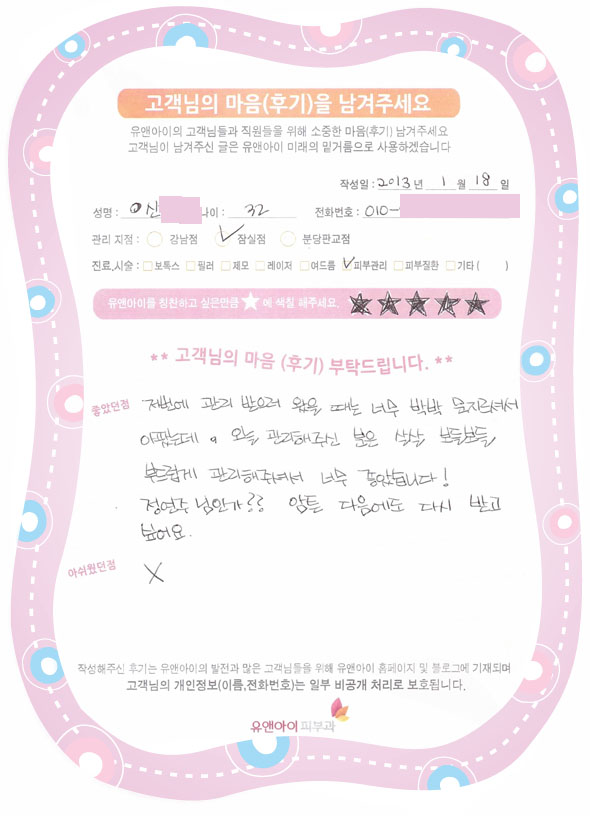 고객님의 마음(후기)을 남겨주세요
유앤아이의 고객님들과 직원들을 위해 소중한 마음(후기) 남겨주세요
고객님이 남겨주신 글은 유앤아이 미래의 밑거름으로 사용하겠습니다
작성일 : 2013 년 1 월 18 일
성명 : 이산 나이 : 32 전화번호 : 010-
관리 지점 : 강남점 잠실점 분당판교점
진료,시술 : 보톡스 필러 제모 레이저 여드름 피부관리 피부질환 기타 ( )
유앤아이를 칭찬하고 싶은만큼 ★ 에 색칠 해주세요. ★★★★★
** 고객님의 마음 (후기) 부탁드립니다. **
좋았던점 저번에 관리 받으러 왔을 때는 너무 박박 문지르셔서
아팠는데 오늘 관리해주신 분은 살살 보들보들
부드럽게 관리해주셔서 너무 좋았습니다!
정연주 님인가?? 암튼 다음에도 다시 받고
싶어요.
아쉬웠던점 X
작성해주신 후기는 유앤아이의 발전과 많은 고객님들을 위해 유앤아이 홈페이지 및 블로그에 기재되며
고객님의 개인정보(이름,전화번호)는 일부 비공개 처리로 보호됩니다.
유앤아이피부과